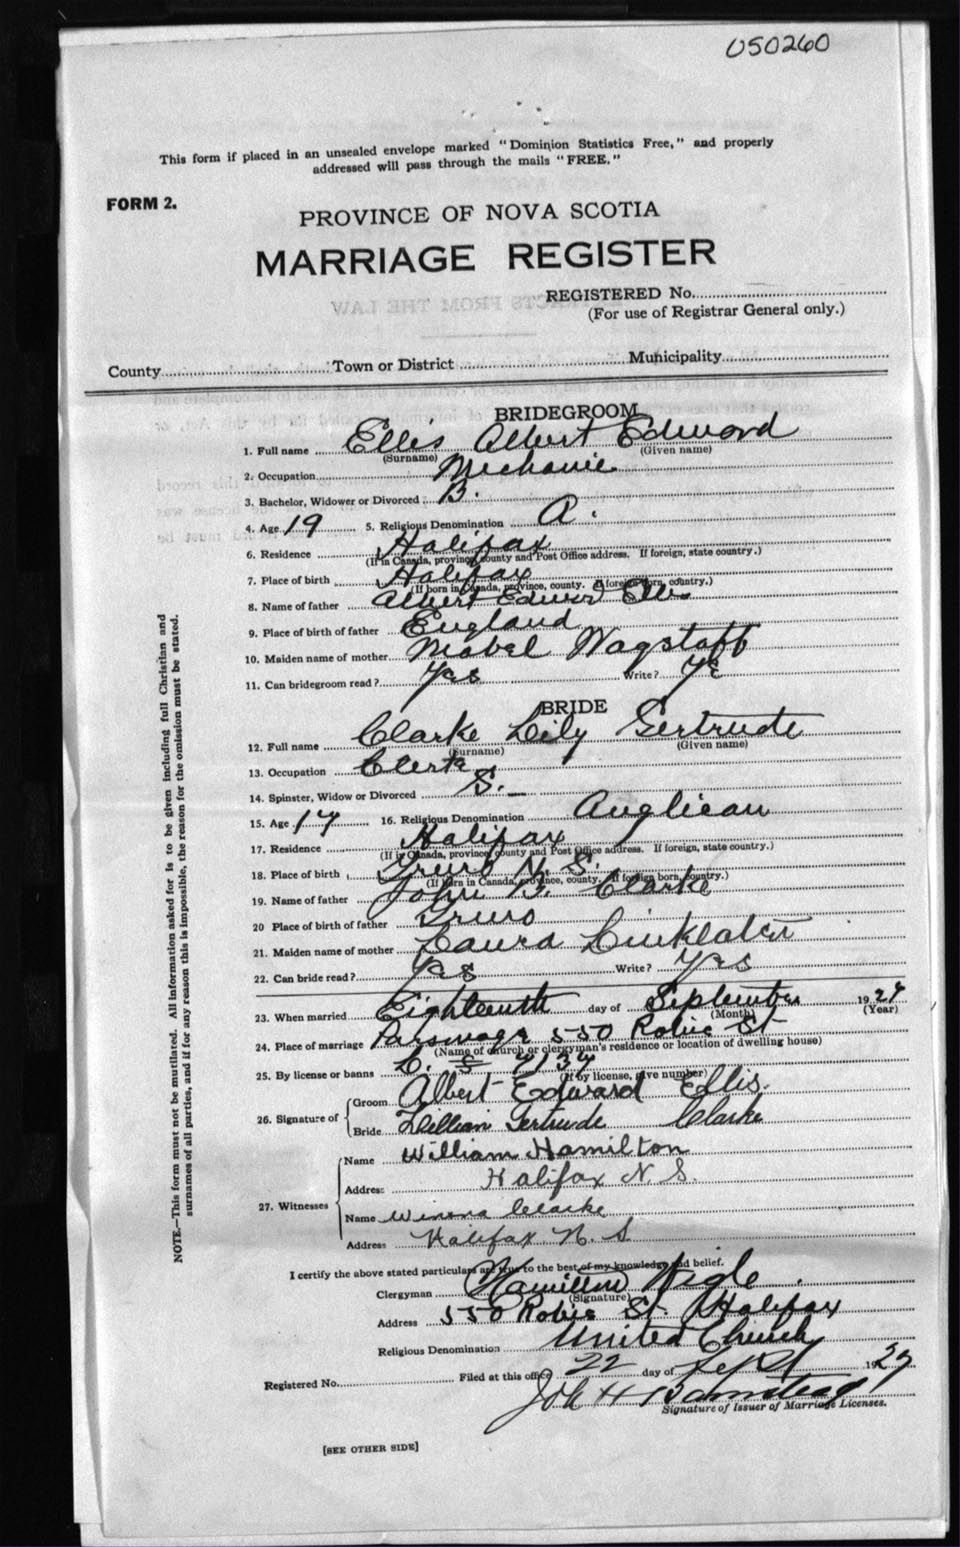 050260
This form if placed in an unsealed envelope marked "Dominion Statistics Free," and properly
addressed will pass through the mails "FREE."
FORM 2.
PROVINCE OF NOVA SCOTIA
MARRIAGE REGISTER
REGISTERED No.
(For use of Registrar General only.)
County Town or District Municipality
BRIDEGROOM
1. Full name Ellis Albert Edward
(Surname) (Given name)
2. Occupation Mechanic
3. Bachelor, Widower or Divorced B.
4. Age 19 5. Religious Denomination A.
6. Residence Halifax
(If in Canada, province, county and Post Office address. If foreign, state country.)
7. Place of birth Halifax
(If born in Canada, province, county. If foreign born, country.)
8. Name of father Albert Edward Ellis
9. Place of birth of father England
10. Maiden name of mother Mabel Wagstaff
11. Can bridegroom read? Yes Write? Yes
BRIDE
12. Full name Clarke Lily Gertrude
(Surname) (Given name)
13. Occupation Clerk
14. Spinster, Widow or Divorced S.
15. Age 17 16. Religious Denomination Anglican
17. Residence Halifax
(If in Canada, province, county and Post Office address. If foreign, state country.)
18. Place of birth Truro N. S.
(If born in Canada, province, county. If foreign born, country.)
19. Name of father John Clarke
20 Place of birth of father Truro
21. Maiden name of mother Laura Linklater
22. Can bride read? Yes Write? Yes
23. When married Eighteenth day of September 1927
(Month) (Year)
24. Place of marriage Parsonage 550 Robie St
(Name of church or clergyman's residence or location of dwelling house)
25. By license or banns L.
(If by license, give number)
26. Signature of
Groom Albert Edward Ellis.
Bride Lillian Gertrude Clarke
27. Witnesses
Name William Hamilton
Address Halifax N. S.
Name Winona Clarke
Address Halifax N. S.
I certify the above stated particulars are true to the best of my knowledge and belief.
Clergyman Hamilton Wigle.
(Signature)
Address 550 Robie St. Halifax
Religious Denomination United Church
Registered No. Filed at this office 22 day of Sept 1927
Signature of Issuer of Marriage Licenses.
[SEE OTHER SIDE]
NOTE.—This form must not be mutilated. All information asked for is to be given including full Christian and
surnames of all parties, and if for any reason this is impossible, the reason for the omission must be stated.